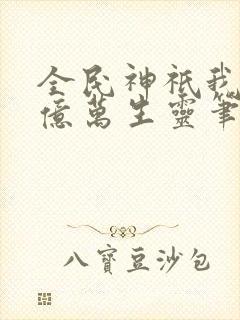 全民神祇我
億萬生靈筆
八寶豆沙包